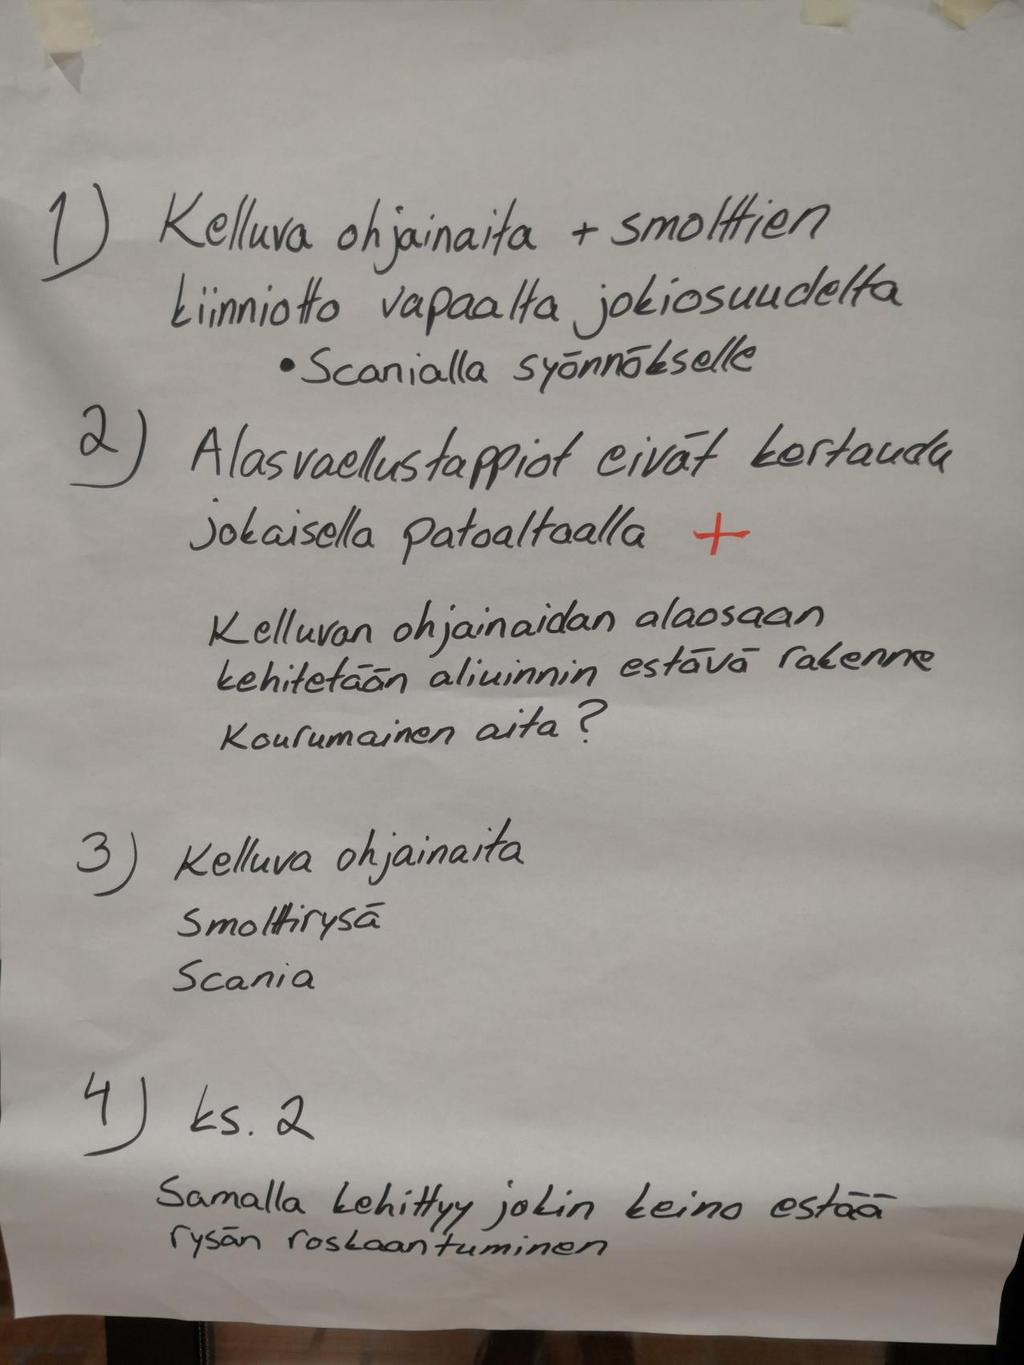 1) Kelluva ohjainaita + smolttien
kiinniotto vapaalta jokiosuudelta
• Scanialla syönnökselle
2) Alasvaellustappiot eivät kertaudu
jokaisella patoaltaalla +
Kelluvan ohjainaidan alaosaan
kehitetään aliuinnin estävä rakenne
Kourumainen aita?
3) Kelluva ohjainaita
Smolttirysä
Scania
4) ks. 2
Samalla kehittyy jokin keino estää
rysän roskaantuminen